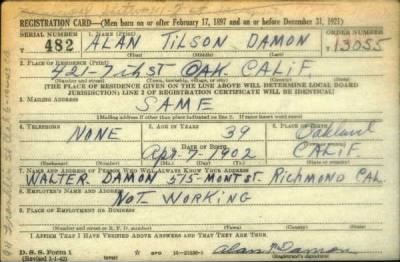 REGISTRATION CARD—(Men born on or after February 17, 1897 and on or before December 31, 1921)
SERIAL NUMBER 1. NAME (Print) ORDER NUMBER
482 ALAN TILSON DAMON 13055
(First) (Middle) (Last)
2. PLACE OF RESIDENCE (Print)
421-7th ST OAK CALIF
(Number and street) (Town, township, village, or city) (County) (State)
[THE PLACE OF RESIDENCE GIVEN ON THE LINE ABOVE WILL DETERMINE LOCAL BOARD
JURISDICTION; LINE 2 OF REGISTRATION CERTIFICATE WILL BE IDENTICAL]
3. MAILING ADDRESS
SAME
[Mailing address if other than place indicated on line 2. If same insert word same]
4. TELEPHONE 5. AGE IN YEARS 6. PLACE OF BIRTH
NONE 39 Oakland
DATE OF BIRTH (Town or county)
Apr-7-1902 CALIF
(Exchange) (Number) (Mo.) (Day) (Yr.) (State or country)
7. NAME AND ADDRESS OF PERSON WHO WILL ALWAYS KNOW YOUR ADDRESS
WALTER DAMON 575-MONT ST. RICHMOND CAL.
8. EMPLOYER'S NAME AND ADDRESS
NOT WORKING
9. PLACE OF EMPLOYMENT OR BUSINESS
(Number and street or R. F. D. number) (Town) (County) (State)
I AFFIRM THAT I HAVE VERIFIED ABOVE ANSWERS AND THAT THEY ARE TRUE.
D. S. S. Form 1
(Revised 1-1-42) (over) Alan T. Damon
(Registrant's signature)